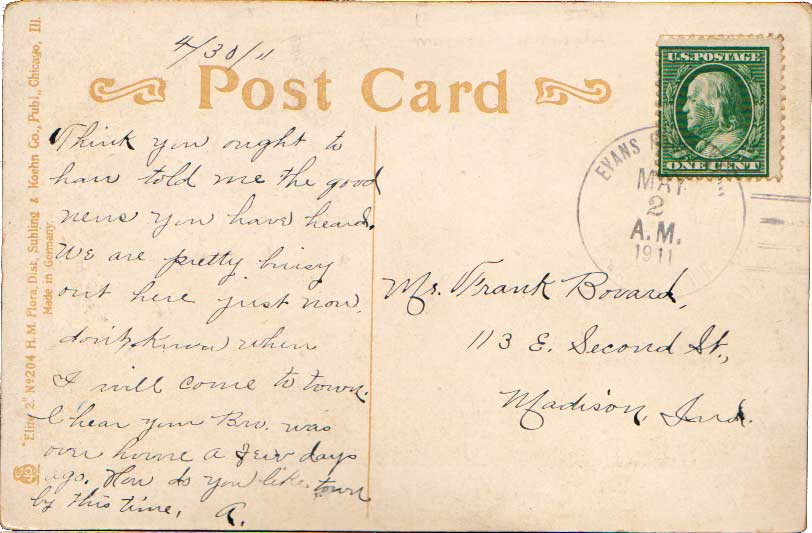 4/30/11
Post Card
U.S. POSTAGE
ONE CENT
EVANS
MAY
2
A.M.
1911
Think you ought to
have told me the good
news you have heard.
We are pretty busy
out here just now.
don't know when
I will come to town.
I hear your Bro. was
over home a few days
ago. How do you like town
by this time. A.
Mr. Frank Bovard,
113 E. Second St.,
Madison, Ind.
"Elite 2" No 204 H.M. Flora, Dist, Suhling & Koehn Co., Publ., Chicago, Ill.
Made in Germany.